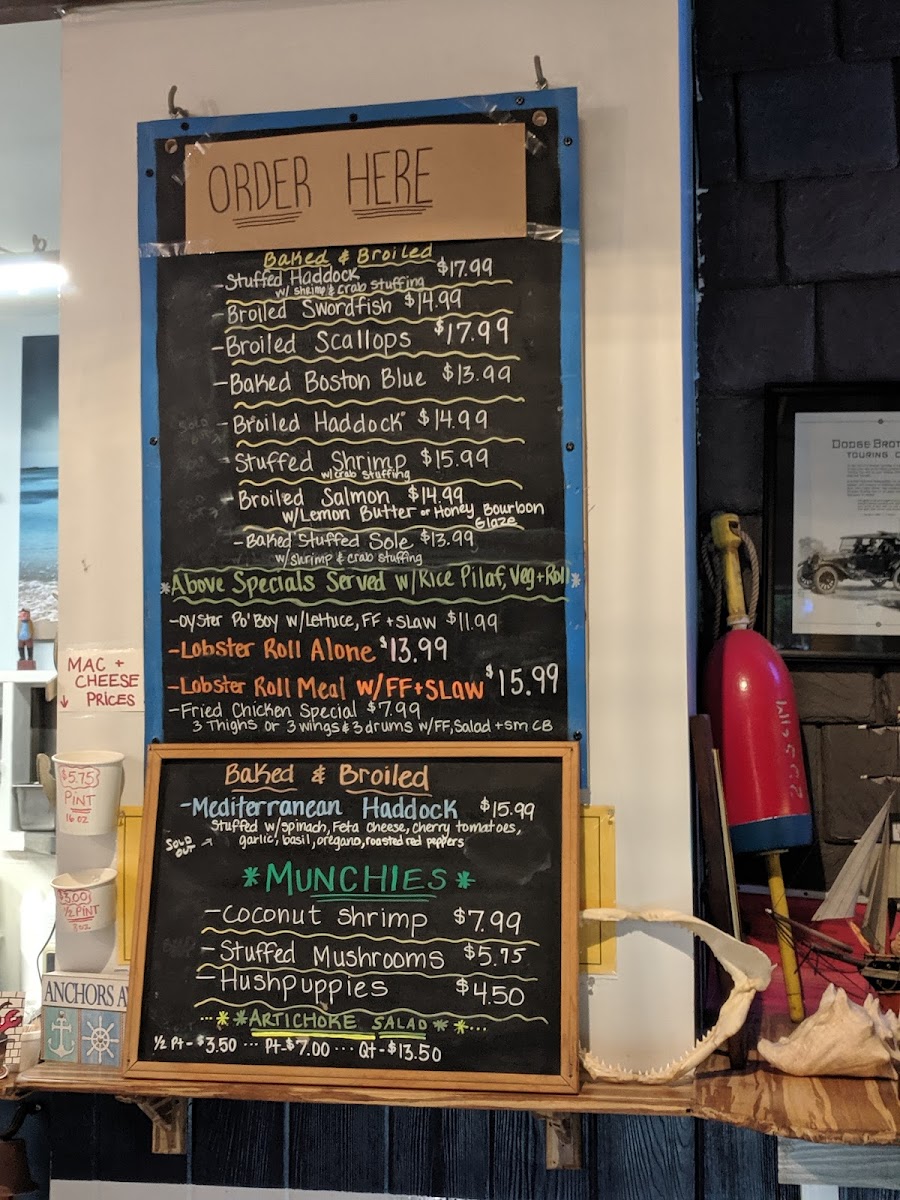 ORDER HERE
Baked & Broiled
-Stuffed Haddock $17.99
w/ shrimp & crab stuffing
-Broiled Swordfish $14.99
-Broiled Scallops $17.99
-Baked Boston Blue $13.99
-Broiled Haddock $14.99
-Stuffed Shrimp $15.99
w/crab stuffing
-Broiled Salmon $14.99
w/Lemon Butter or Honey Bourbon
Glaze
-Baked Stuffed Sole $13.99
w/shrimp & crab stuffing
*Above Specials Served w/Rice Pilaf, Veg+Roll*
-Oyster Po'Boy w/Lettuce, FF +SLAW $11.99
-Lobster Roll Alone $13.99
-Lobster Roll Meal w/FF+SLAW $15.99
-Fried Chicken Special $7.99
3 Thighs or 3 wings & 3 drums w/FF, Salad +sm CB
MAC +
CHEESE
PRICES
$5.75
PINT
16 oz
$3.00
1/2 PINT
8 oz
ANCHORS A
Baked & Broiled
-Mediterranean Haddock $15.99
Stuffed w/spinach, Feta cheese, cherry tomatoes,
garlic, basil, oregano, roasted red peppers
SOLD
OUT
*MUNCHIES*
-Coconut shrimp $7.99
-Stuffed Mushrooms $5.75
-Hushpuppies $4.50
...**ARTICHOKE SALAD**...
1/2 Pt- $3.50 ... Pt-$7.00 ... Qt-$13.50
DODGE BROT
TOURING C